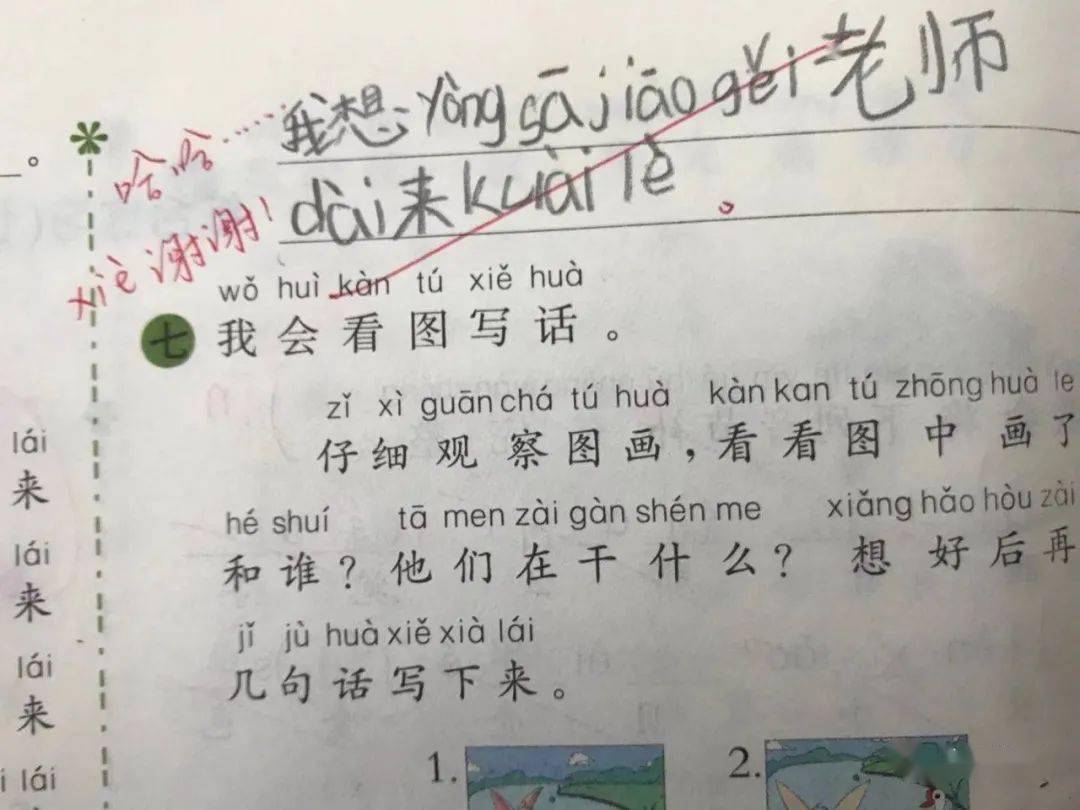 我想yòng sā jiāo gěi老师
dài来kuài lè
。
哈哈……
xiè谢谢!
wǒ huì kàn tú xiě huà
七 我会看图写话。
zǐ xì guān chá tú huà kàn kan tú zhōng huà le
仔细观察图画,看看图中画了
hé shuí tā men zài gàn shén me xiǎng hǎo hòu zài
和谁?他们在干什么?想好后再
jǐ jù huà xiě xià lái
几句话写下来。
1. 2.
。
lái
来
lái
来
lái
来
i lái